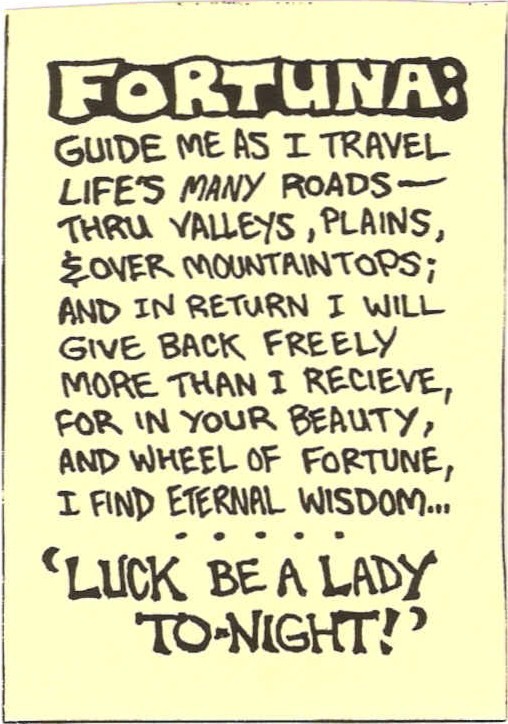 FORTUNA:
GUIDE ME AS I TRAVEL
LIFE'S MANY ROADS—
THRU VALLEYS, PLAINS,
& OVER MOUNTAINTOPS;
AND IN RETURN I WILL
GIVE BACK FREELY
MORE THAN I RECIEVE,
FOR IN YOUR BEAUTY,
AND WHEEL OF FORTUNE,
I FIND ETERNAL WISDOM...
. . . . .
'LUCK BE A LADY
TO-NIGHT!'